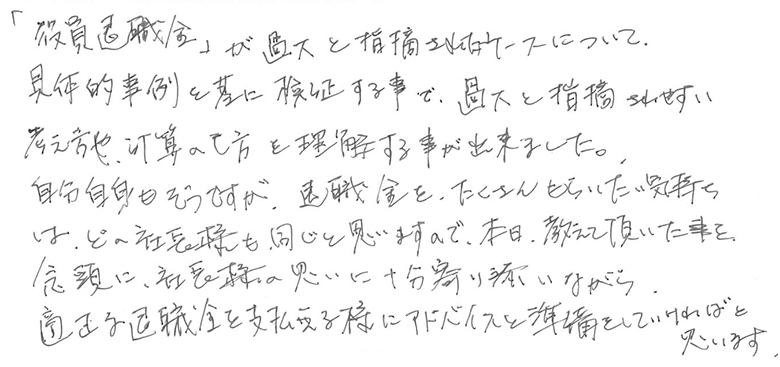 「役員退職金」が過大と指摘されるケースについて、
具体的事例を基に検証する事で、過大と指摘されやすい
考え方や、計算の仕方を理解する事が出来ました。
自分自身もそうですが、退職金を、たくさんもらいたい気持ち
は、どの社長様も、同じと思いますので、本日、教えて頂いた事を、
念頭に、社長様の思いに十分寄り添いながら、
適正な退職金を支払える様にアドバイスと準備をしていければと
思います。